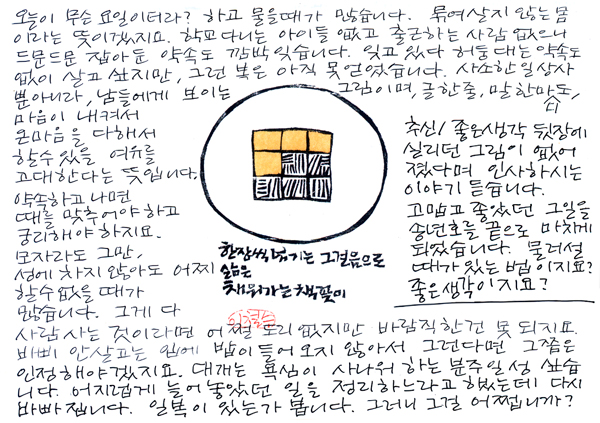 오늘이 무슨 요일이더라? 하고 물을때가 많습니다. 묶여살지 않는 몸
이라는 뜻이겠지요. 학교 다니는 아이들 없고 출근하는 사람 없으니
드문드문 잡아둔 약속도 깜빡 잊습니다. 잊고 있다 허둥대는 약속도
없이 살고 싶지만, 그런 복은 아직 못 얻었습니다. 사소한 일상사
뿐아니라, 남들에게 보이는 그림이며, 글 한줄, 말 한마디도,
마음이 내켜서
온마음을 다해서
할수 있을 여유를
고대한다는 뜻입니다.
약속하고 나면
때를 맞추어야 하고
궁리해야 하지요.
모자라도 그만,
성에 하지 않아도 어찌
할수 없을 때가
많습니다. 그게 다
한장씩 넘기는 그걸음으로
삶은
채워가는 책꽂이
이철수
추신/ 좋은생각 뒷장에
실리던 그림이 없어
졌다며 인사하시는
이야기 듣습니다.
고맙고 좋았던 그일을
송년호를 끝으로 마치게
되었습니다. 물러설
때가 있는 법이지요?
좋은생각이지요?
사람 사는 것이라면 어쩔 도리 없지만 바람직한건 못 되지요.
바삐 안살고는 입에 밥이 들어오지 않아서 그런다면 그쯤은
인정해야겠지요. 대개는 욕심이 사나워 하는 분주일성 싶습
니다. 어지럽게 늘어놓았던 일을 정리하느라고 했는데 다시
바빠집니다. 일복이 있는가 봅니다. 그러니 그걸 어쩝니까?